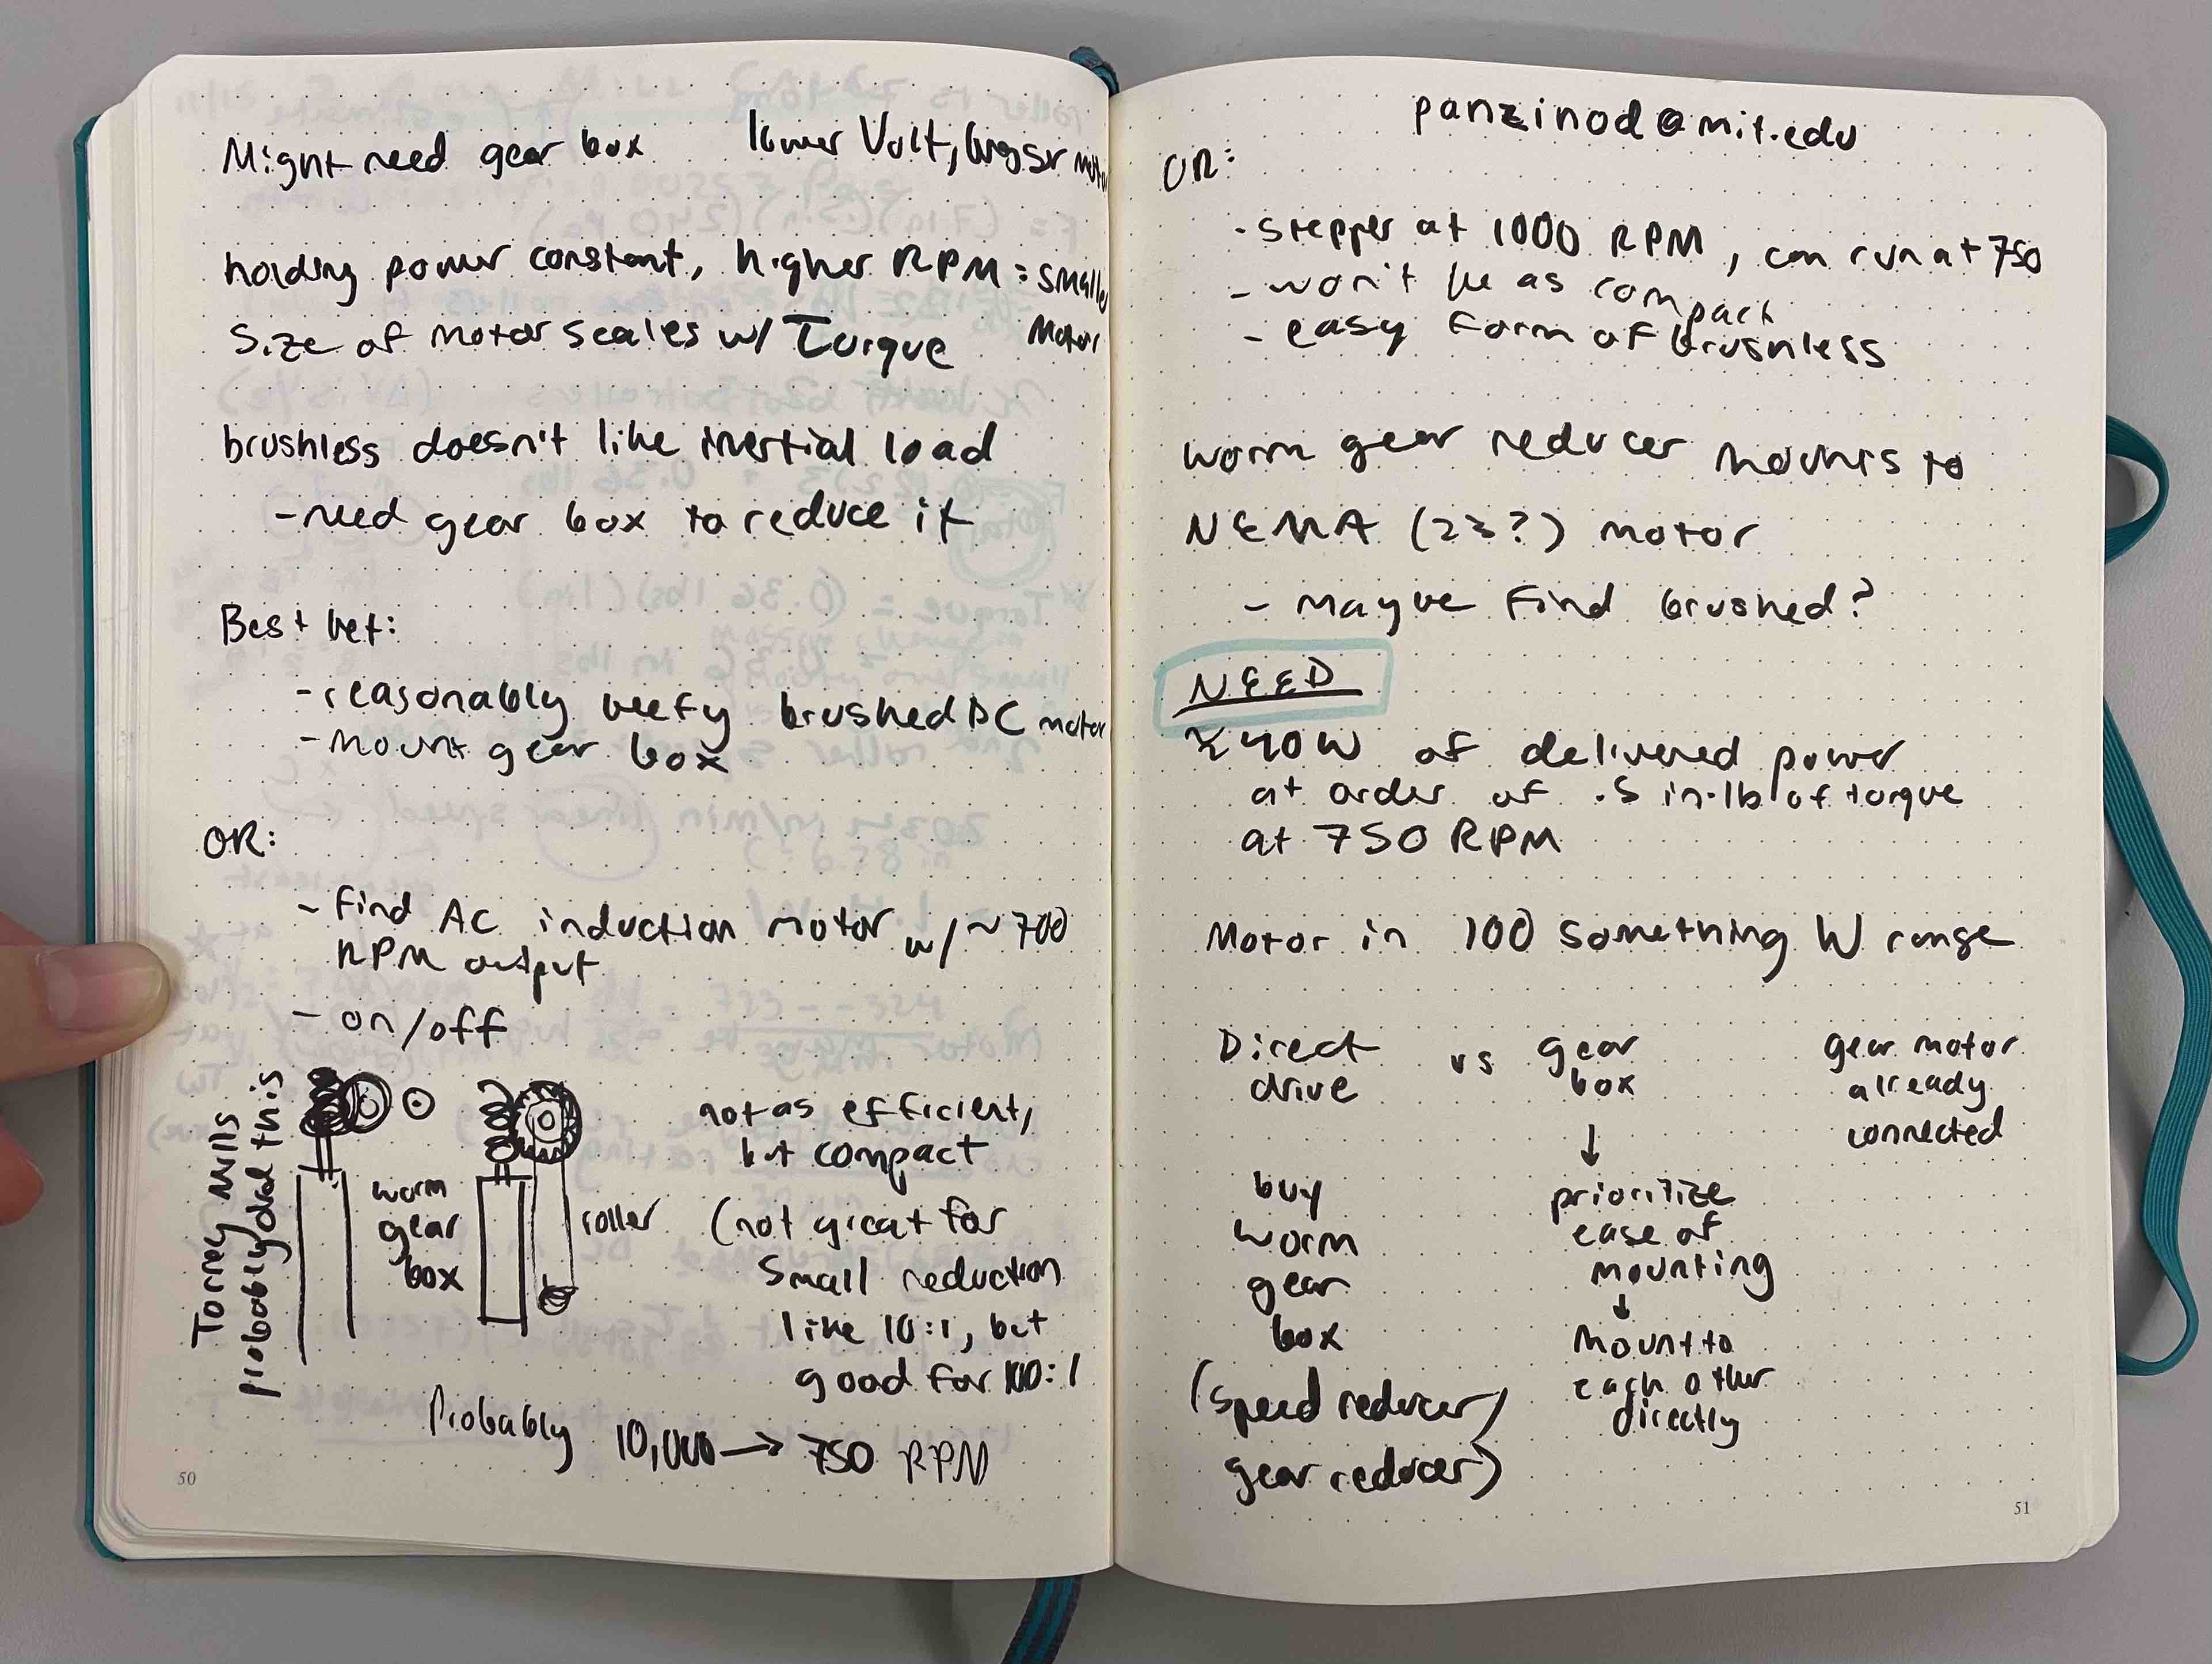 Might need gear box
lower Volt, larger motor
holding power constant, higher RPM = smaller
Motor
Size of motor scales w/ Torque
brushless doesn't like inertial load
- need gear box to reduce it
Best bet:
- reasonably beefy brushed DC motor
- mount gear box
OR:
- Find AC induction motor w/ ~700
RPM output
- on/off
probably did this
worm
gear
box
roller
not as efficient,
but compact
(not great for
small reduction
like 10:1, but
good for 100:1
Probably 10,000 → 750 RPM
50
panzinod@mit.edu
OR:
- stepper at 1000 RPM, can run at 750
- won't be as compact
- easy form of brushless
worm gear reducer mounts to
NEMA (23?) motor
- maybe find brushed?
NEED
≈40W of delivered power
at order of .5 in·lb of torque
at 750 RPM
Motor in 100 something W range
Direct
drive
vs
gear
box
gear motor
already
connected
buy
worm
gear
box
(speed reducer/
gear reducer)
↓
prioritize
ease of
mounting
↓
mount to
each other
directly
51